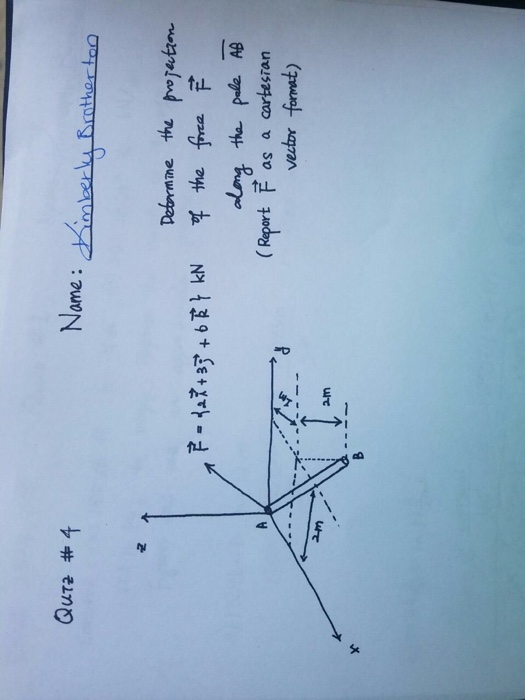 QUIZ # 4
Name: Kimberly Bratherton
F⃗ = {2i⃗ + 3j⃗ + 6k⃗} kN
Determine the projection
of the force F⃗
along the pole A̅B̅
(Report F⃗ as a cartesian
vector format)
z
A
y
2m
2m
B
x